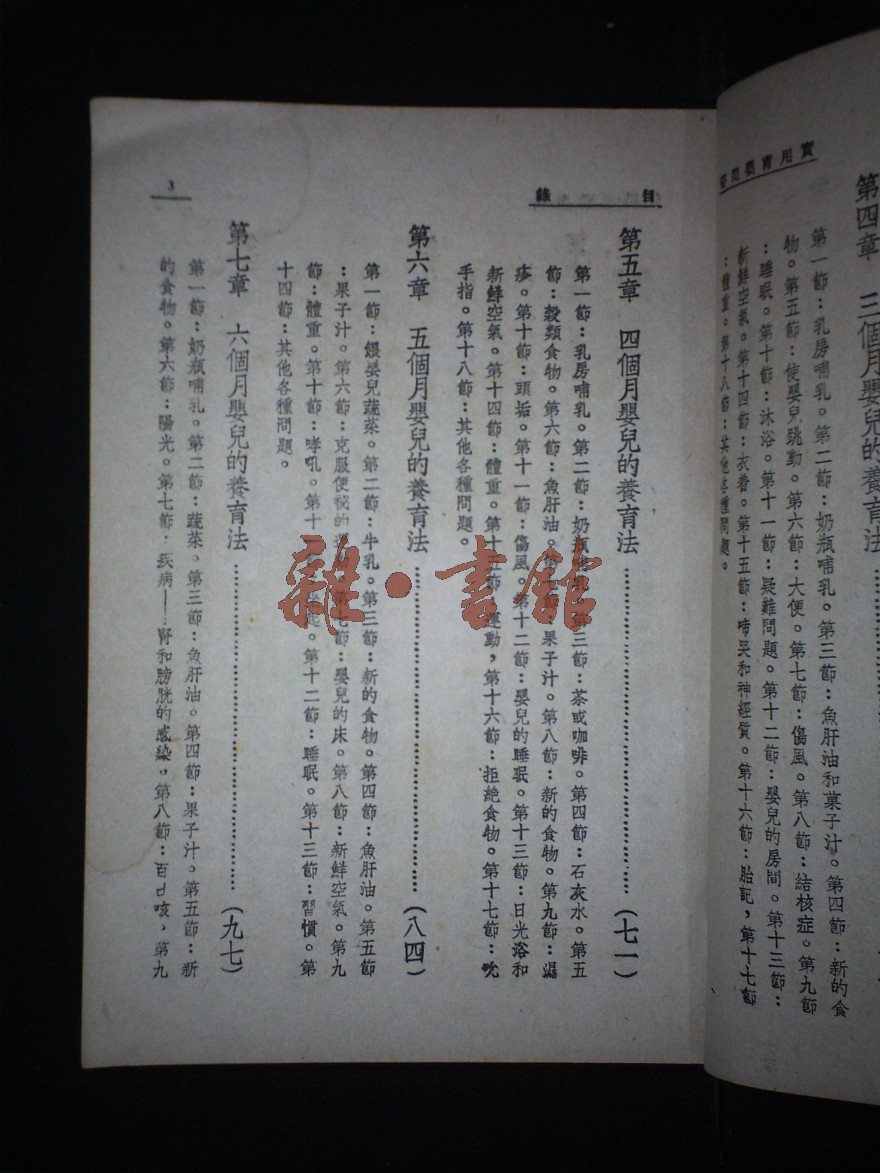 實用育嬰問答
第四章　三個月嬰兒的養育法
第一節：乳房哺乳。第二節：奶瓶哺乳。第三節：魚肝油和菓子汁。第四節：新的食
物。第五節：使嬰兒跳動。第六節：大便。第七節：傷風。第八節：結核症。第九節
：睡眠。第十節：沐浴。第十一節：疑難問題。第十二節：嬰兒的房間。第十三節：
新鮮空氣。第十四節：衣着。第十五節：啼哭和神經質。第十六節：胎記，第十七節
：體重。第十八節：其他各種問題。
目錄
第五章　四個月嬰兒的養育法……（七一）
第一節：乳房哺乳。第二節：奶瓶哺乳。第三節：茶或咖啡。第四節：石灰水。第五
節：穀類食物。第六節：魚肝油。第七節：果子汁。第八節：新的食物。第九節：濕
疹。第十節：頭垢。第十一節：傷風。第十二節：嬰兒的睡眠。第十三節：日光浴和
新鮮空氣。第十四節：體重。第十五節：運動，第十六節：拒絶食物。第十七節：吮
手指。第十八節：其他各種問題。
第六章　五個月嬰兒的養育法……（八四）
第一節：餵嬰兒蔬菜。第二節：牛乳。第三節：新的食物。第四節：魚肝油。第五節
：果子汁。第六節：克服便秘的。第七節：嬰兒的床。第八節：新鮮空氣。第九
節：體重。第十節：哮吼。第十一起。第十二節：睡眠。第十三節：習慣。第
十四節：其他各種問題。
第七章　六個月嬰兒的養育法……（九七）
第一節：奶瓶哺乳。第二節：蔬菜。第三節：魚肝油。第四節：果子汁。第五節：新
的食物。第六節：陽光。第七節：疾病——腎和膀胱的感染，第八節：百日咳，第九
3
雜·書館